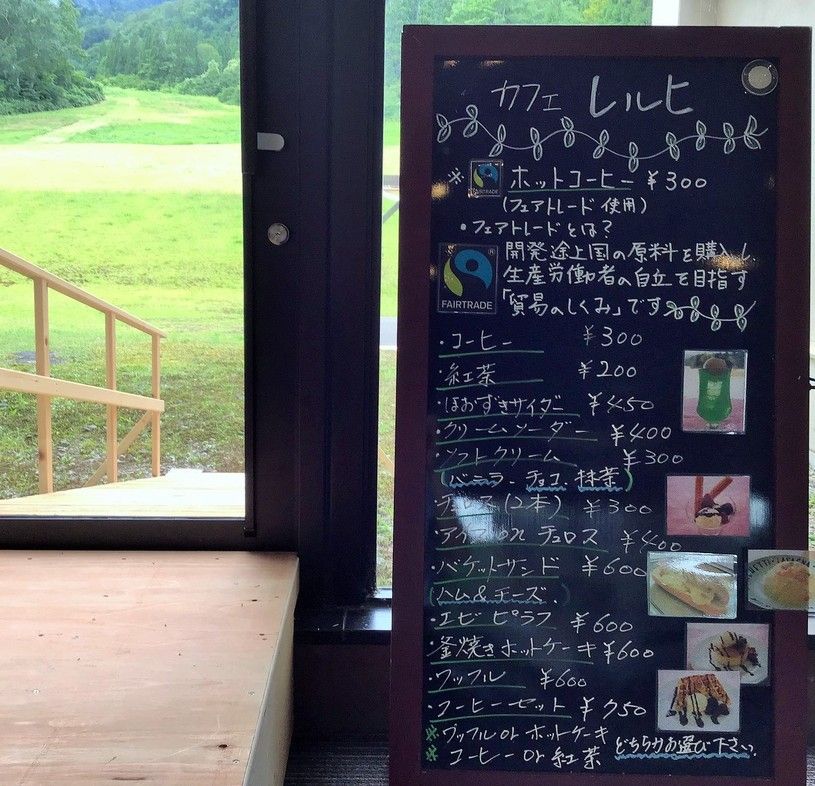 カフェ レルヒ
※ FAIRTRADE ホットコーヒー ¥300
(フェアトレード使用)
・フェアトレードとは?
開発途上国の原料を購入し
生産労働者の自立を目指す
「貿易のしくみ」です
FAIRTRADE
・コーヒー ¥300
・紅茶 ¥200
・ほおずきサイダー ¥450
・クリームソーダー ¥400
・ソフトクリーム ¥300
(バニラ、チョコ、抹茶)
・チュロス(2本) ¥300
・アイス on チュロス ¥400
・バケットサンド ¥600
(ハム&チーズ、)
・エビピラフ ¥600
・釜焼きホットケーキ ¥600
・ワッフル ¥600
・コーヒーセット ¥750
※ワッフル or ホットケーキ
※コーヒー or 紅茶 どちらかお選び下さい。